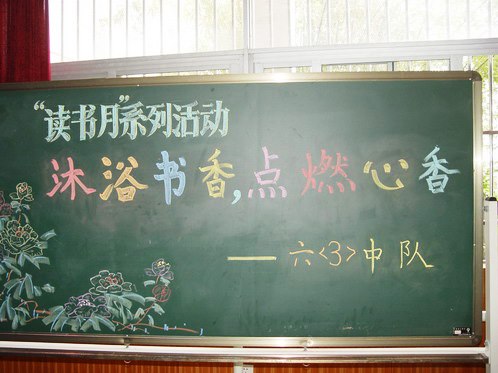 “读书月”系列活动
沐浴书香,点燃心香
——六<3>中队